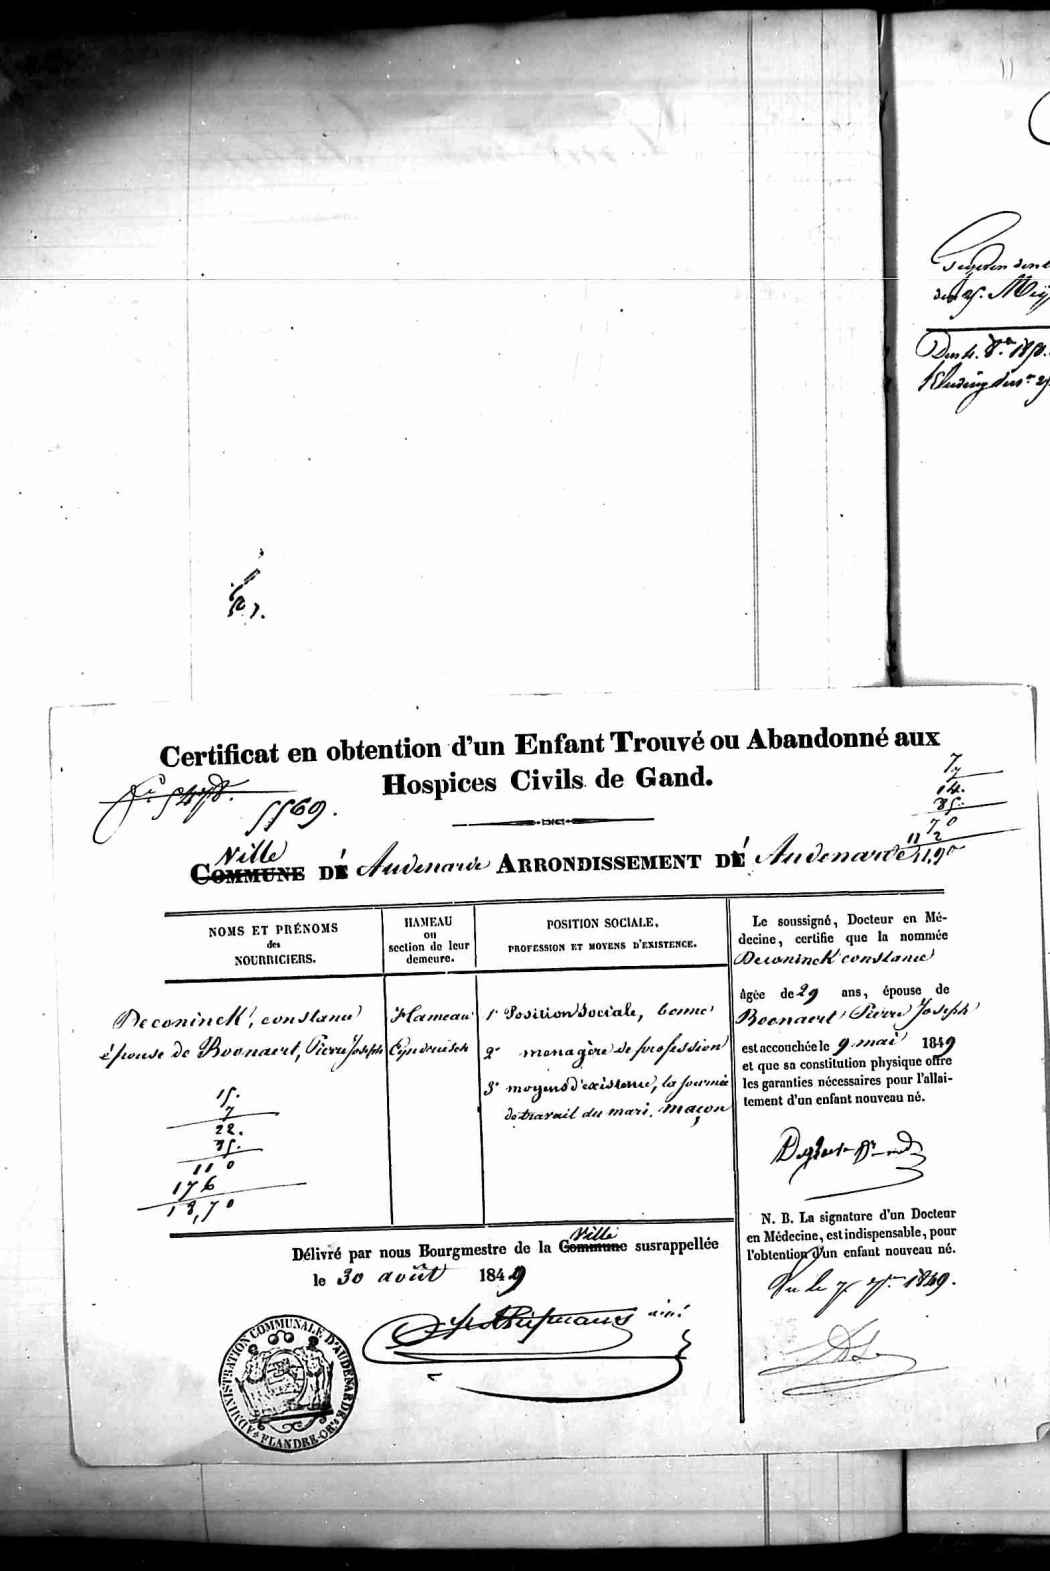 den 25. Meij
Certificat en obtention d'un Enfant Trouvé ou Abandonné aux
Hospices Civils de Gand.
5478.
5569.
7
7
14.
35.
70
112
11,90
Ville
COMMUNE DE Audenarde ARRONDISSEMENT DE Audenarde
NOMS ET PRÉNOMS
des
NOURRICIERS.
HAMEAU
ou
section de leur
demeure.
POSITION SOCIALE,
PROFESSION ET MOYENS D'EXISTENCE.
Deconinck, constance
épouse de Boonaert, Pierre Joseph
Hameau
Eyndruisch
1° Position Sociale, bonne
2° menagère de profession
3° moyens d'existence, la journée
de travail du mari, maçon
15.
7
22.
35.
110
176
18,70
Le soussigné, Docteur en Mé-
decine, certifie que la nommée
Deconinck constance
âgée de 29 ans, épouse de
Boonaert Pierre Joseph
est accouchée le 9 mai 1849
et que sa constitution physique offre
les garanties nécessaires pour l'allai-
tement d'un enfant nouveau né.
N. B. La signature d'un Docteur
en Médecine, est indispensable, pour
l'obtention d'un enfant nouveau né.
Vu le 7 7re 1849.
Ville
Délivré par nous Bourgmestre de la Commune susrappellée
le 30 août 1849
ADMINISTRATION COMMUNALE D'AUDENARDE
FLANDRE-OR.